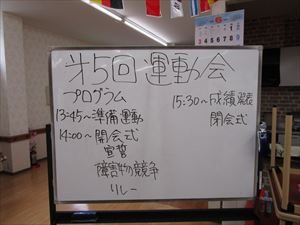 第5回運動会
プログラム
13:45～準備運動
14:00～開会式
宣誓
障害物競争
リレー
15:30～成績発表
閉会式